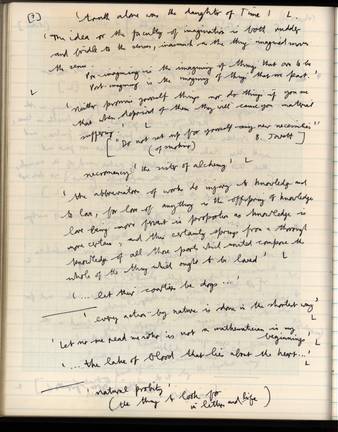 [?] 'Truth alone was the daughter of Time' L
'The idea or the faculty of imagination is both rudder
and bridle to the senses, inasmuch as the thing imagined moves
the sense.
Pre-imagining is the imagining of things that are to be
Post-imagining is the imagining of things that are past.'
L
'Neither promise yourself things nor do things if you see
that when deprived of them they will cause you material
suffering.' L
["Do not set up for yourself any new necessities"
(of mother) B. Jowett]
necromancy 'the sister of alchemy' L
'The abbreviators of works do injury to knowledge and
to love, for love of anything is the offspring of knowledge
love being more fervent in proportion as knowledge is
more certain; and this certainty springs from a thorough
knowledge of all those parts which united compose the
whole of the thing which ought to be loved' L
'... let their courtiers be dogs ...'
'every action by nature is done in the shortest way' L
'Let no one read me who is not a mathematician in my
beginnings' L
'... the lake of blood that lies about the heart ...' L
'natural probity'
(the thing to look for
in letters and life)